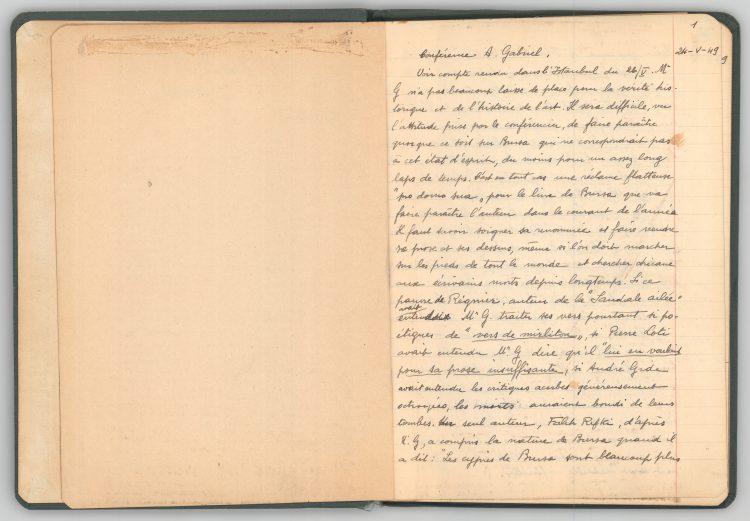 1
Conférence A. Gabriel.
24-V-49
9
Voir compte rendu dans l'Istanbul du 26/V. Mr
G n'a pas beaucoup laissé de place pour la vérité his-
torique et de l'histoire de l'art. Il sera difficile, vu
l'attitude prise par le conférencier, de faire paraître
quoique ce soit sur Bursa qui ne correspondrait pas
à cet état d'esprit, du moins pour un assez long
laps de temps. C'est en tout cas une réclame flatteuse
"pro domo sua", pour le livre de Bursa que va
faire paraître l'auteur dans le courant de l'année
Il faut savoir soigner sa renommée et faire vendre
sa prose et ses dessins, même si l'on doit marcher
sur les pieds de tout le monde et chercher chicane
aux écrivains morts depuis longtemps! Si ce
pauvre de Régnier, auteur de la "Sandale ailée"
avait
entendu Mr G. traiter ses vers pourtant si po-
étiques de "vers de mirliton", si Pierre Loti
avait entendu Mr G dire qu'il "lui en voulait
pour sa prose insuffisante, si André Gide
avait entendu les critiques acerbes généreusement
octroyées, les morts auraient bondi de leurs
tombes. Un seul auteur, Falih Rifki, d'après
M. G, a compris la nature de Bursa quand il
a dit: "Les cyprès de Bursa sont beaucoup plus